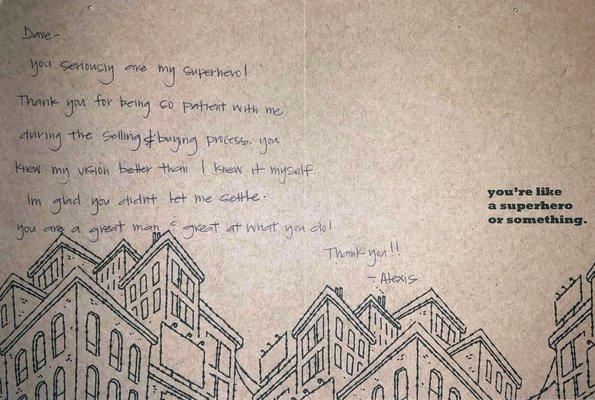 Dave-
you seriously are my superhero!
Thank you for being so patient with me
during the selling & buying process. you
knew my vision better than I knew it myself.
Im glad you didnt let me settle.
you are a great man & great at what you do!
Thank you!!
- Alexis
you're like
a superhero
or something.